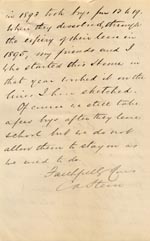 in 1892 took boys from 12 to 19.
When they dissolved, through
the expiry of their lease in
1895, my friends and I
who started this Home in
that year worked it on the
lines I have sketched.
Of course we still take
apers boys after they leave
school but we do not
allow them to stay on as
we used to do.
Faithfully yours